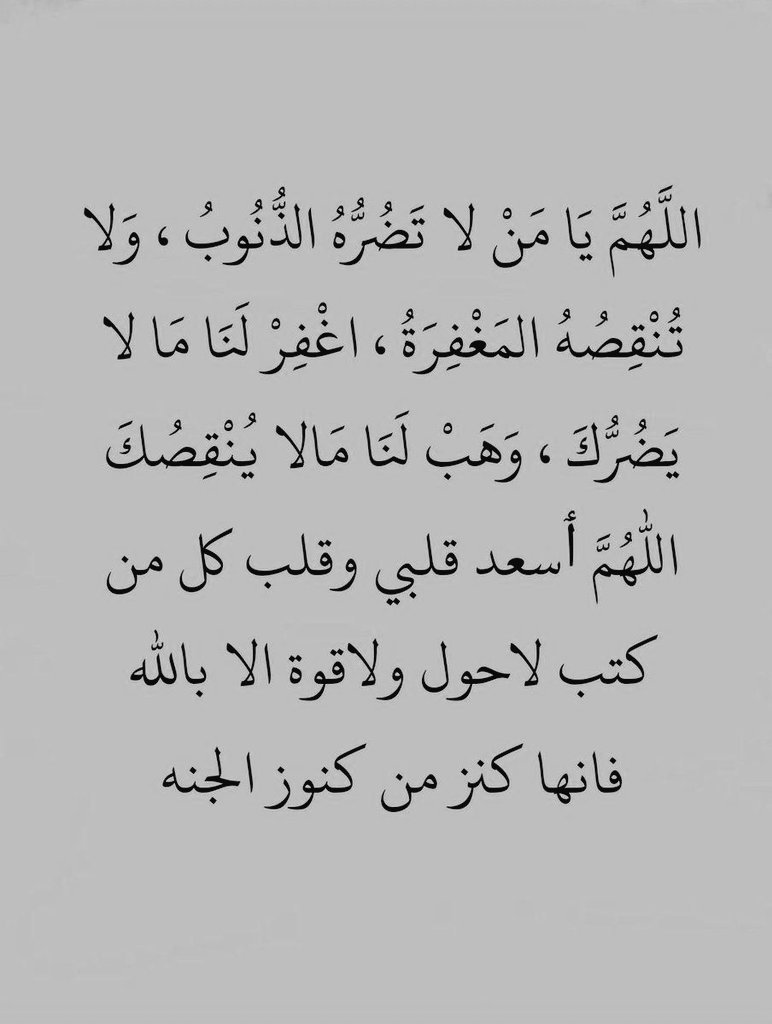 اللَّهُمَّ يَا مَنْ لا تَضُرُّهُ الذُّنُوبُ ، وَلا
تُنْقِصُهُ المَغْفِرَةُ ، اغْفِرْ لَنَا مَا لا
يَضُرُّكَ ، وَهَبْ لَنَا مَالا يُنْقِصُكَ
اللّٰهُمَّ أسعد قلبي وقلب كل من
كتب لاحول ولاقوة الا بالله
فانها كنز من كنوز الجنه